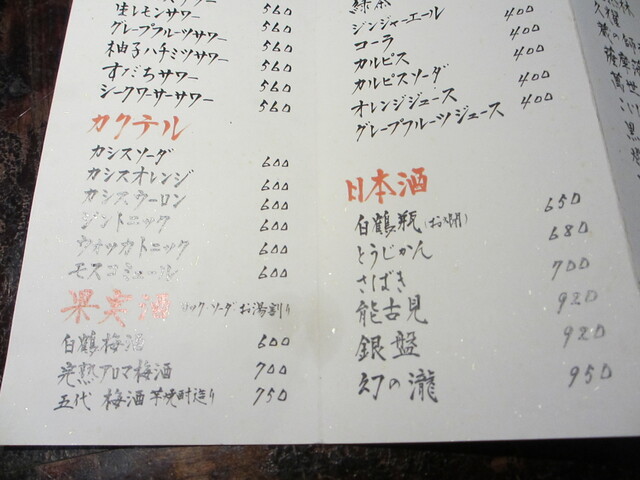 生レモンサワー 560
グレープフルーツサワー 560
柚子ハチミツサワー 560
すだちサワー 560
シークワーサーサワー 560
カクテル
カシスソーダ 600
カシスオレンジ 600
カシスウーロン 600
ジントニック 600
ウォッカトニック 600
モスコミュール 600
果実酒 ロック・ソーダ お湯割り
白鶴梅酒 600
完熟アロマ梅酒 700
五代 梅酒 芋焼酎造り 750
緑茶
ジンジャーエール 400
コーラ 400
カルピス 400
カルピスソーダ 400
オレンジジュース 400
グレープフルーツジュース
日本酒
白鶴瓶 650
とうじかん 680
さばき 700
能古見 920
銀盤 920
幻の瀧 950